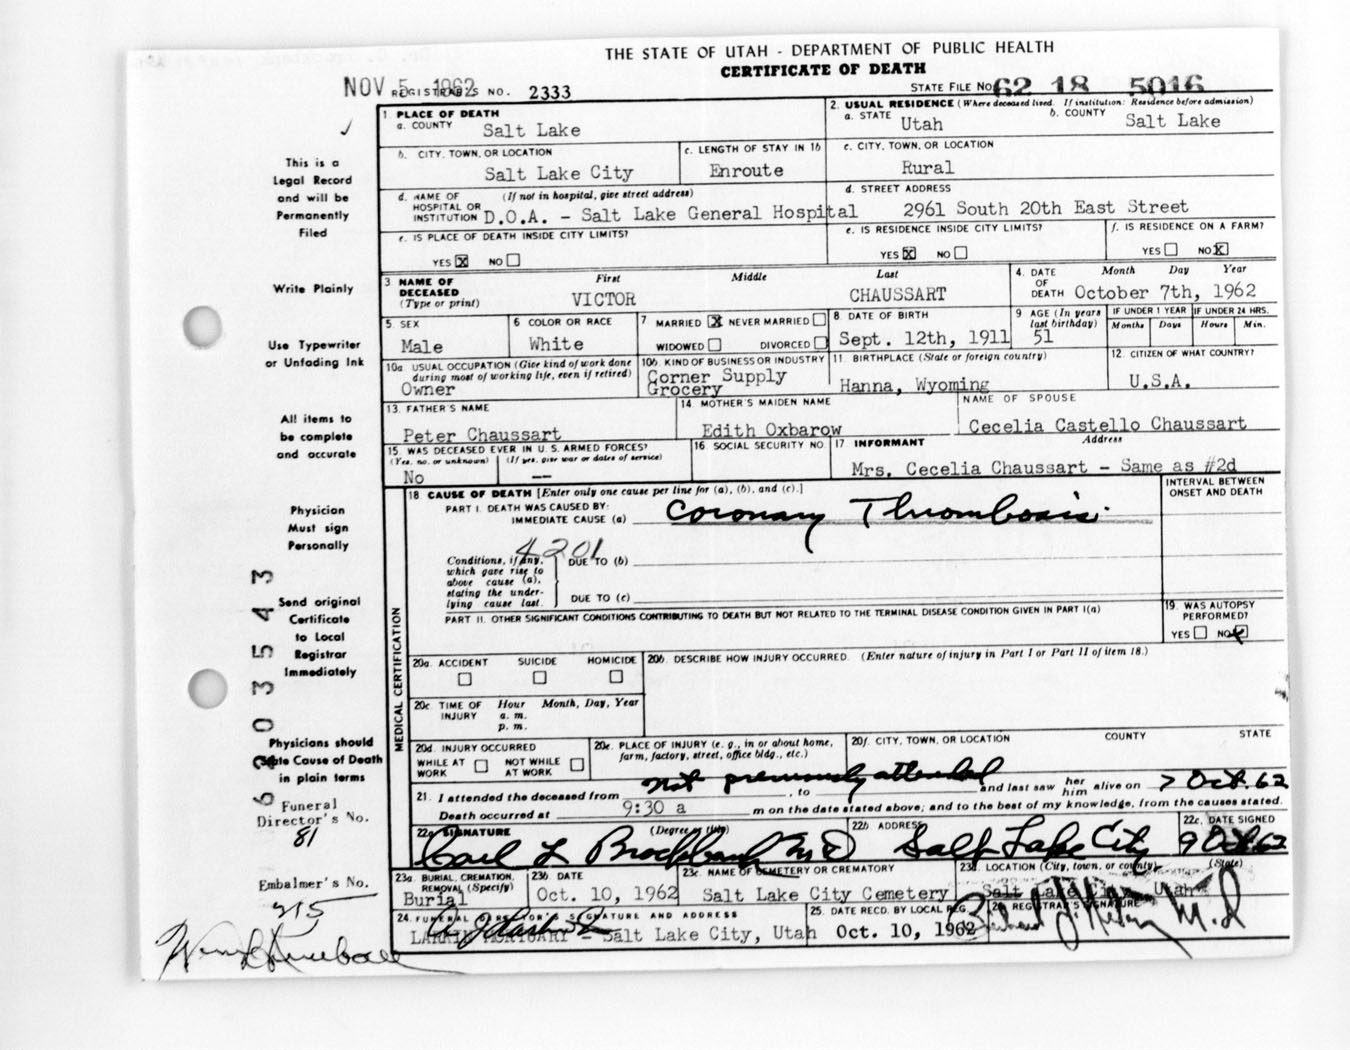 THE STATE OF UTAH - DEPARTMENT OF PUBLIC HEALTH
CERTIFICATE OF DEATH
NOV 5 1962 REGISTRAR'S NO. 2333 STATE FILE NO. 62 18 5016
This is a
Legal Record
and will be
Permanently
Filed
Write Plainly
Use Typewriter
or Unfading Ink
All items to
be complete
and accurate
Physician
Must sign
Personally
Send original
Certificate
to Local
Registrar
Immediately
Physicians should
State Cause of Death
in plain terms
Funeral
Director's No.
81
Embalmer's No.
215
1 PLACE OF DEATH
a. COUNTY Salt Lake
2. USUAL RESIDENCE (Where deceased lived. If institution: Residence before admission)
a. STATE Utah b. COUNTY Salt Lake
b. CITY, TOWN, OR LOCATION Salt Lake City
c. LENGTH OF STAY IN 1b Enroute
c. CITY, TOWN, OR LOCATION Rural
d. NAME OF HOSPITAL OR INSTITUTION (If not in hospital, give street address)
D.O.A. - Salt Lake General Hospital
d. STREET ADDRESS
2961 South 20th East Street
e. IS PLACE OF DEATH INSIDE CITY LIMITS?
YES X NO
e. IS RESIDENCE INSIDE CITY LIMITS?
YES X NO
f. IS RESIDENCE ON A FARM?
YES NO X
3. NAME OF DECEASED (Type or print) First Middle Last
VICTOR CHAUSSART
4. DATE OF DEATH Month Day Year
October 7th, 1962
5. SEX Male
6 COLOR OR RACE White
7 MARRIED X NEVER MARRIED
WIDOWED DIVORCED
8 DATE OF BIRTH Sept. 12th, 1911
9 AGE (In years last birthday) 51
IF UNDER 1 YEAR Months Days
IF UNDER 24 HRS. Hours Min.
10a USUAL OCCUPATION (Give kind of work done during most of working life, even if retired)
Owner
10b. KIND OF BUSINESS OR INDUSTRY
Corner Supply
Grocery
11. BIRTHPLACE (State or foreign country)
Hanna, Wyoming
12. CITIZEN OF WHAT COUNTRY?
U.S.A.
13. FATHER'S NAME
Peter Chaussart
14 MOTHER'S MAIDEN NAME
Edith Oxbarow
NAME OF SPOUSE
Cecelia Castello Chaussart
15. WAS DECEASED EVER IN U. S. ARMED FORCES?
(Yes, no, or unknown) (If yes, give war or dates of service)
No --
16. SOCIAL SECURITY NO.
17 INFORMANT Address
Mrs. Cecelia Chaussart - Same as #2d
MEDICAL CERTIFICATION
18. CAUSE OF DEATH [Enter only one cause per line for (a), (b), and (c).]
INTERVAL BETWEEN
ONSET AND DEATH
PART I. DEATH WAS CAUSED BY:
IMMEDIATE CAUSE (a) Coronary Thrombosis
4201
Conditions, if any,
which gave rise to
above cause (a),
stating the under-
lying cause last.
DUE TO (b)
DUE TO (c)
PART II. OTHER SIGNIFICANT CONDITIONS CONTRIBUTING TO DEATH BUT NOT RELATED TO THE TERMINAL DISEASE CONDITION GIVEN IN PART I(a)
19. WAS AUTOPSY
PERFORMED?
YES NO X
20a. ACCIDENT SUICIDE HOMICIDE
20b. DESCRIBE HOW INJURY OCCURRED. (Enter nature of injury in Part I or Part II of item 18.)
20c TIME OF INJURY Hour Month, Day, Year
a. m.
p. m.
20d. INJURY OCCURRED
WHILE AT WORK NOT WHILE AT WORK
20e. PLACE OF INJURY (e. g., in or about home,
farm, factory, street, office bldg., etc.)
20f. CITY, TOWN, OR LOCATION COUNTY STATE
21. I attended the deceased from not previously attended, to and last saw her him alive on 7 Oct. 62
Death occurred at 9:30 a m on the date stated above; and to the best of my knowledge, from the causes stated.
22a SIGNATURE (Degree or title)
Carl L Brockbank MD
22b ADDRESS
Salt Lake City
22c. DATE SIGNED
9 Oct. 62
23a. BURIAL, CREMATION, REMOVAL (Specify)
Burial
23b DATE
Oct. 10, 1962
23c. NAME OF CEMETERY OR CREMATORY
Salt Lake City Cemetery
23d. LOCATION (City, town, or county) (State)
Salt Lake City, Utah
24. FUNERAL DIRECTOR'S SIGNATURE AND ADDRESS
LARKIN MORTUARY - Salt Lake City, Utah
25. DATE RECD. BY LOCAL REG.
Oct. 10, 1962
26. REGISTRAR'S SIGNATURE
M.D